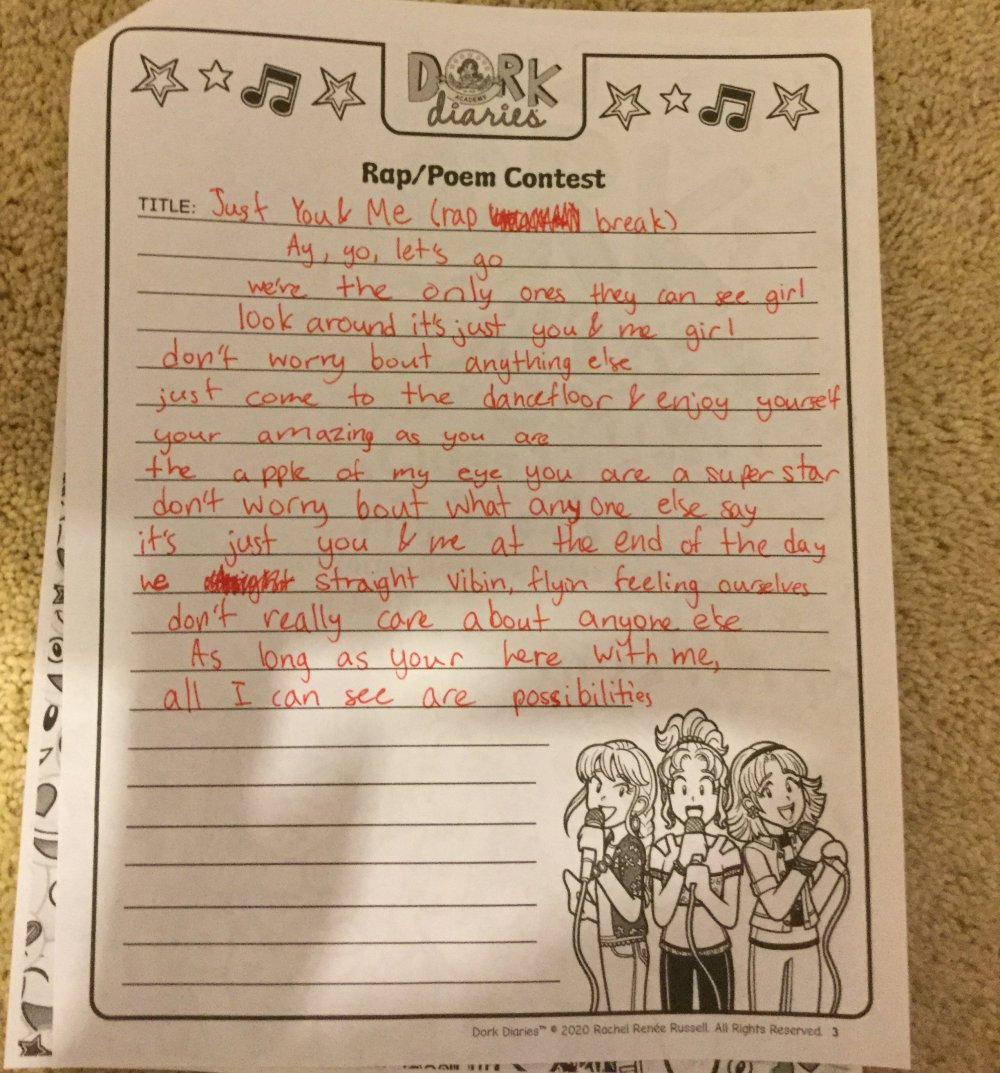 DORK
ACADEMY
diaries
Rap/Poem Contest
TITLE: Just You & Me (rap break)
Ay, yo, let's go
we're the only ones they can see girl
look around it's just you & me girl
don't worry bout anything else
just come to the dancefloor & enjoy yourself
your amazing as you are
the apple of my eye you are a super star
don't worry bout what any one else say
it's just you & me at the end of the day
we straight vibin, flyin feeling ourselves
don't really care about anyone else
As long as your here with me,
all I can see are possibilities
Dork Diaries™ © 2020 Rachel Renée Russell. All Rights Reserved. 3